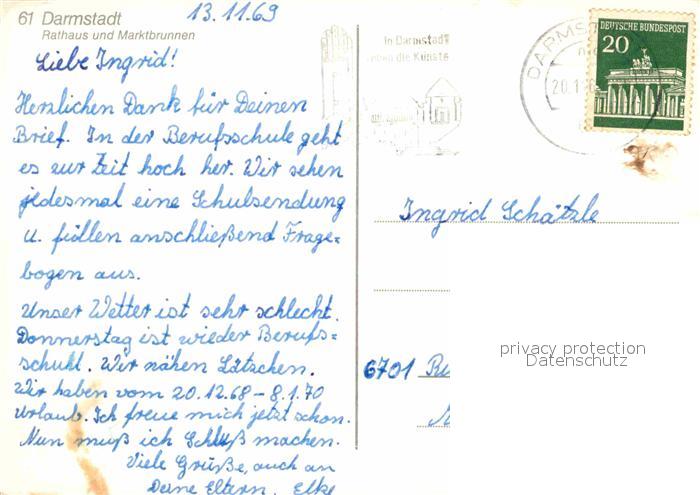 61 Darmstadt
Rathaus und Marktbrunnen
13.11.69
Liebe Ingrid!
Herzlichen Dank für Deinen
Brief. In der Berufsschule geht
es zur Zeit hoch her. Wir sehen
jedesmal eine Schulsendung
u. füllen anschließend Frage=
bogen aus.
Unser Wetter ist sehr schlecht.
Donnerstag ist wieder Berufs=
schule. Wir nähen Lätzchen.
Wir haben vom 20.12.68 - 8.1.70
Urlaub. Ich freue mich jetzt schon.
Nun muß ich Schluß machen.
Viele Grüße, auch an
Deine Eltern. Elke
In Darmstadt
leben die Künste
DARMS
20.1
DEUTSCHE BUNDESPOST
20
Ingrid Schätzle
6701
privacy protection
Datenschutz